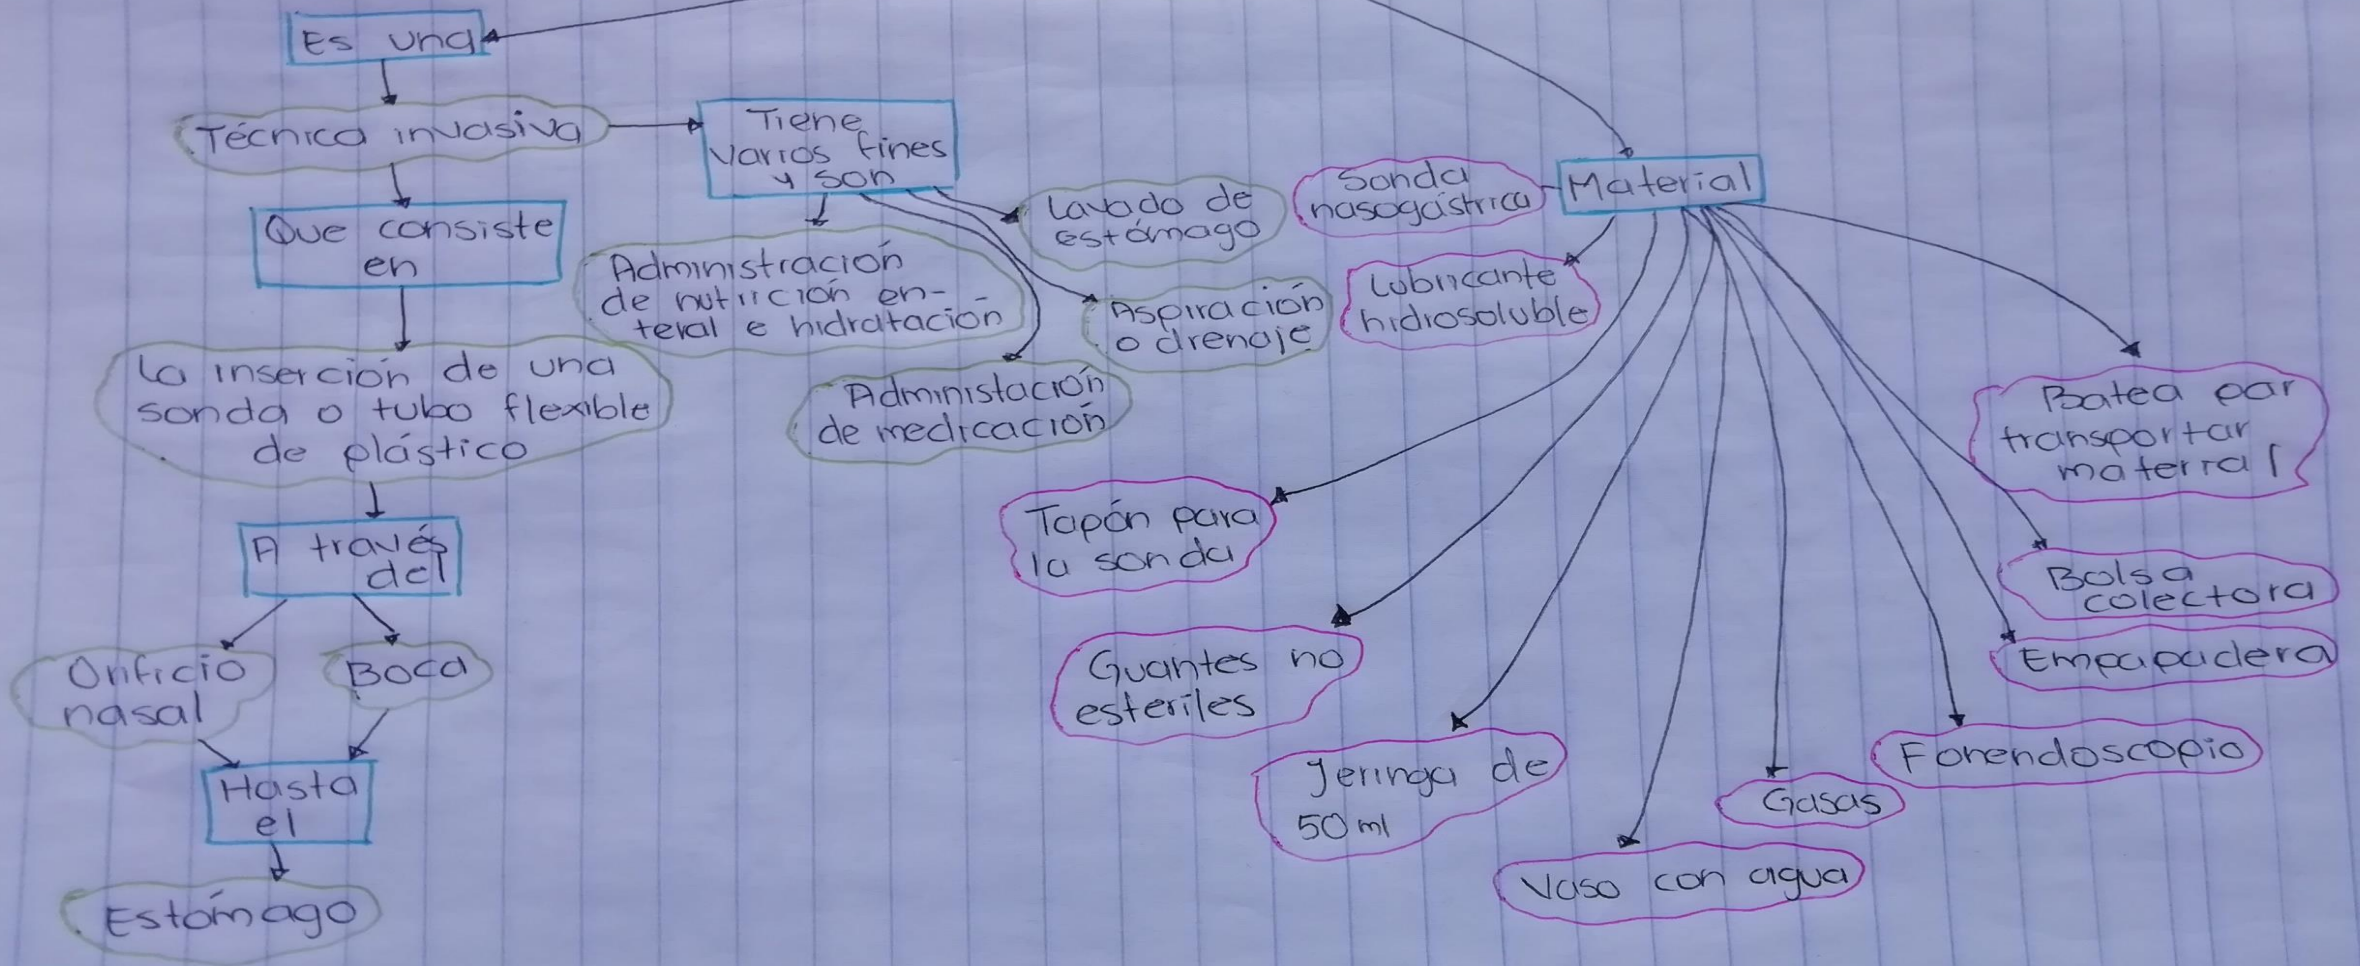 Es una
Técnica invasiva
Que consiste
en
La inserción de una
sonda o tubo flexible
de plástico
A través
del
Orificio
nasal
Boca
Hasta
el
Estómago
Tiene
varios fines
y son
Lavado de
estómago
Administración
de nutrición en-
teral e hidratación
Aspiración
o drenaje
Administación
de medicación
Material
Sonda
nasogástrica
Lubricante
hidrosoluble
Tapón para
la sonda
Guantes no
esteriles
Jeringa de
50 ml
Vaso con agua
Gasas
Fonendoscopio
Empapadera
Bolsa
colectora
Batea par
transportar
material